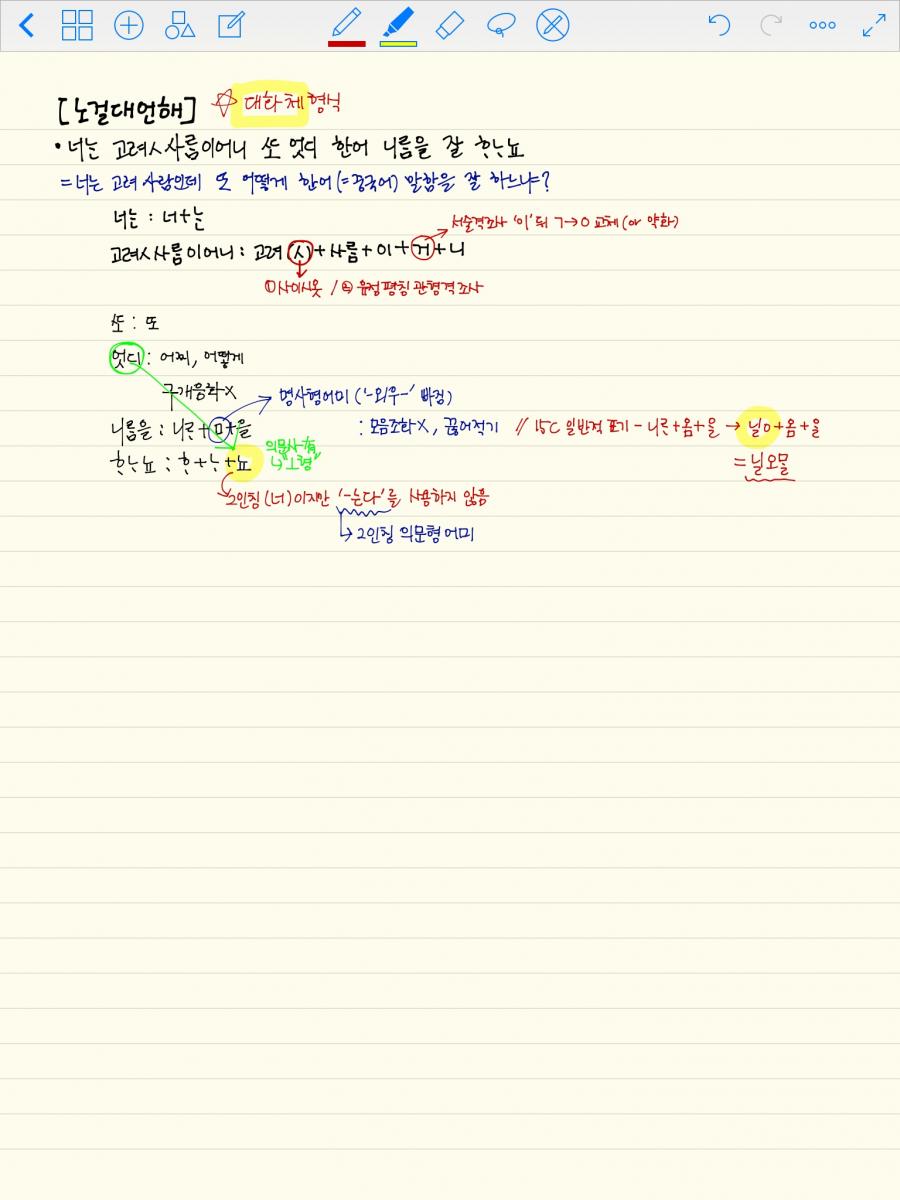 [노걸대언해] ☆ 대화체 형식
• 너는 고려ㅅ사ᄅᆞᆷ이어니 ᄯᅩ 엇디 한어 니ᄅᆞᆷ을 잘 ᄒᆞᄂᆞ뇨
= 너는 고려 사람인데 또 어떻게 한어(=중국어) 말함을 잘 하느냐?
너는 : 너+는
고려ㅅ사ᄅᆞᆷ이어니 : 고려+ㅅ+사ᄅᆞᆷ+이+거+니
서술격조사 '이' 뒤 ㄱ→ㅇ 교체(or 약화)
①사이시옷 / ② 유정평칭 관형격조사
ᄯᅩ : 또
엇디 : 어찌, 어떻게
구개음화X
니ᄅᆞᆷ을 : 니ᄅᆞ+ㅁ+을
명사형어미 ('-오/우-' 빠짐)
: 모음조화X, 끊어적기 // 15C 일반적 표기 - 니ᄅᆞ+옴+ᄋᆞᆯ → 닐ㅇ+옴+ᄋᆞᆯ
= 닐오ᄆᆞᆯ
ᄒᆞᄂᆞ뇨 : ᄒᆞ+ᄂᆞ+뇨
의문사 有
↳ '오'형
2인칭(너)이지만 '-ㄴ다'를 사용하지 않음
↳ 2인칭 의문형 어미